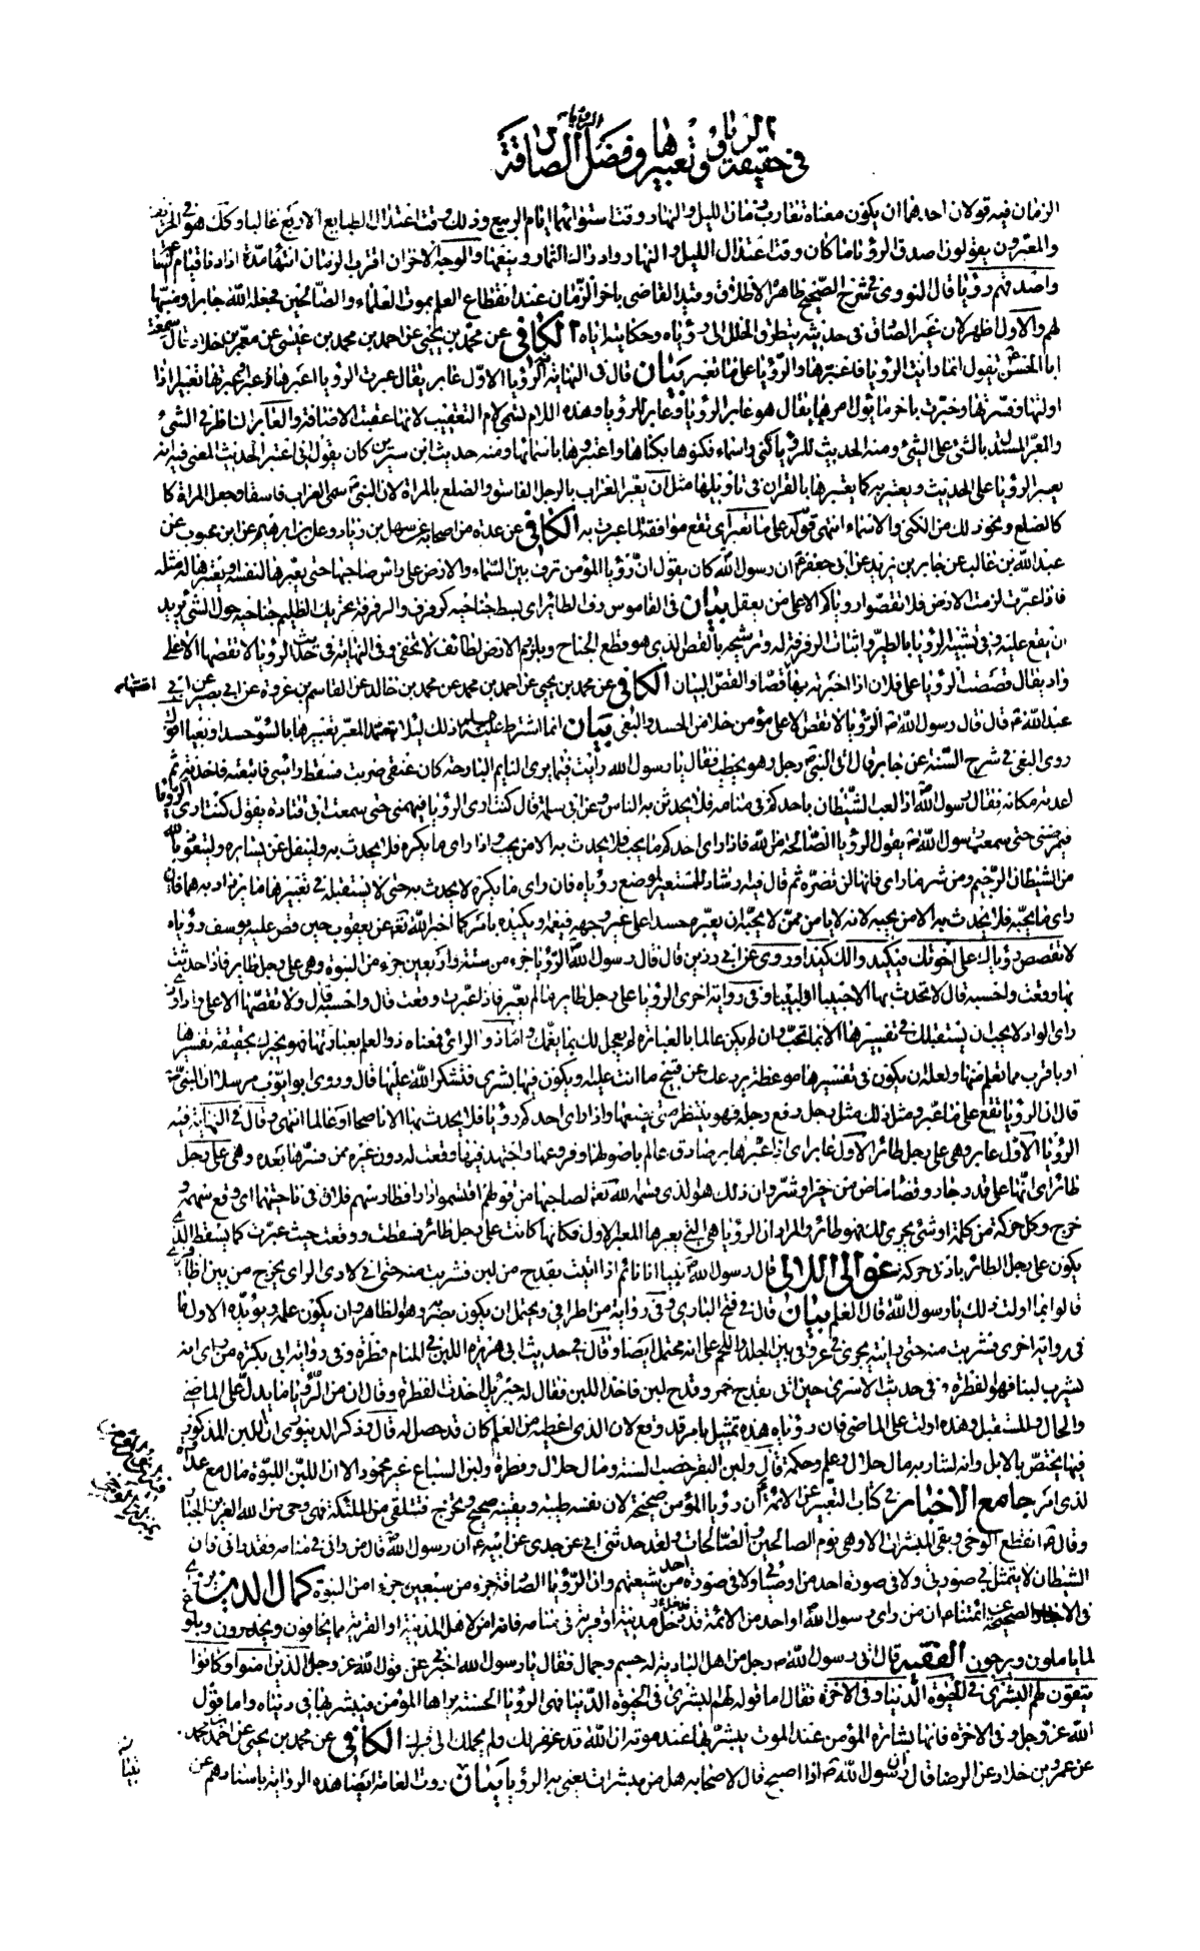 في حقيقة الرؤيا وتعبيرها وفضل الرؤيا الصادقة
الزمان فيه قولان احدهما ان يكون معناه تقارب زمان الليل والنهار وقت استوائهما ايام الربيع وذلك وقت اعتدال الطبايع الاربع غالبا وكك هو في الخريف
والمعبرون يقولون اصدق الرؤيا ما كان وقت اعتدال الليل والنهار وادراك الثمار وينعها والوجه الاخر ان اقتراب الزمان انتهاء مدته اذا دنا قيام الساعة
واصدقهم رؤيا قال النووي في شرح الصحيح ظاهره الاطلاق وقيد القاضي باخر الزمان عند انقطاع العلم بموت العلماء والصالحين فجعله الله جابرا ومنبها
لهم والاول اظهر لان غير الصادق في حديثه يتطرق الخلل الى رؤياه وحكايته اياه الكافي عن محمد بن يحيى عن احمد بن محمد بن عيسى عن معمر بن خلاد قال سمعت
ابا الحسن يقول انما رايت الرؤيا فاعبرها والرؤيا على ما تعبر بيان قال في النهاية فيه الرؤيا لاول عابر يقال عبرت الرؤيا اعبرها عبرا وعبرتها تعبيرا اذا
اولتها وفسرتها وخبرت باخر ما يؤل امرها يقال هو عابر الرؤيا وعابر للرؤيا وهذه اللام تسمى لام التعقيب لانها عقبت الاضافة والعابر الناظر في الشئ
والمعبر المستدل بالشئ على الشئ ومنه الحديث للرؤيا كنى واسماء فكنوها بكناها واعتبروها باسمائها ومنه حديث ابن سيرين كان يقول اني اعتبر الحديث المعنى فيه انه
يعبر الرؤيا على الحديث ويعتبر به كما يعتبرها بالقران في تاويلها مثل ان يعبر الغراب بالرجل الفاسق والضلع بالمراة لان النبي سمى الغراب فاسقا وجعل المراة كا
كالضلع ونحو ذلك من الكنى والاسماء انتهى قوله على ما تعبر اي تقع موافقة لما عبرت به الكافي عن عدة من اصحابه عن سهل بن زياد وعلي بن ابرهيم عن ابن محبوب عن
عبدالله بن غالب عن جابر بن يزيد عن ابي جعفر ان رسول الله كان يقول ان رؤيا المؤمن ترف بين السماء والارض على راس صاحبها حتى يعبرها لنفسه او يعبرها له مثله
فاذا عبرت لزمت الارض فلا تقصوا رؤياكم الا على من يعقل بيان في القاموس رف الطائر اي بسط جناحيه كرفرف والرفرفة تحريك الظليم جناحيه حول الشئ يريد
ان يقع عليه وفي تشبيه الرؤيا بالطير واثبات الرفرفة له وترشيحه بالقص الذي هو قطع الجناح ويلزم الارض لطائف لا تخفى وفي النهاية في حديث الرؤيا لا تقصها الا على
واد يقال قصصت الرؤيا على فلان اذا اخبرته بها قصا والقص البيان الكافي عن محمد بن يحيى عن احمد بن محمد عن محمد بن خالد عن القاسم بن عروة عن ابي بصير عن ابي
عبدالله قال قال رسول الله الرؤيا لا تقص الا على مؤمن خلا من الحسد والبغي بيان انما اشترط عليه ذلك لئلا يتعمد المعبر تعبيرها بالسوء حسدا وبغيا اقول
روى البغي في شرح السنة عن جابر قال اتى النبي رجل وهو يخطب فقال يا رسول الله رايت فيما يرى النايم البارحة كان عنقي ضربت فسقط راسي فاتبعته فاخذته ثم
اعدته مكانه فقال رسول الله اذا لعب الشيطان باحدكم في منامه فلا يحدثن به الناس وعن ابي سلمة قال كنت ارى الرؤيا فيهمني حتى سمعت ابي قتادة يقول كنت ارى الرؤيا
فيمرضني حتى سمعت رسول الله يقول الرؤيا الصالحة من الله فاذا راى احدكم ما يحب فلا يحدث به الا من يحب واذا راى ما يكره فلا يحدث به وليتفل عن يساره وليتعوذ بالله
من الشيطان الرجيم ومن شر ما راى فانها لن تضره ثم قال فيه رشاد للمستعبر لموضع رؤياه فان راى ما يكره لا يحدث به حتى لا يستقبله في تعبيرها ما يزداد به هما فان
راى ما يحبه فلا يحدث به الا من يحبه لانه لا يامن ممن لا يحبه ان يعبره حسدا على غير وجهه فيغمه او يكيده بامر كما اخبر الله تعه عن يعقوب حين قص عليه يوسف رؤياه
لا تقصص رؤياك على اخوتك فيكيدوا لك كيدا وروى عن ابي رزين قال قال رسول الله الرؤيا جزء من ستة واربعين جزء من النبوة وهي على رجل طاير فاذا حدثت
بها وقعت واحسبه قال لا تحدث بها الا حبيبا او لبيبا وفي رواية اخرى الرؤيا على رجل طاير ما لم يعبر فاذا عبرت وقعت قال واحسبه قال ولا تقصها الا على واد او ذي
راى الواد لا يحب ان يستقبلك في تفسيرها الا بما تحب وان لم يكن عالما بالعبارة لم يعجل لك بما يغمك واما ذو الراي فمعناه ذو العلم بعبارتها فهو يخبرك بحقيقة تفسيرها
او باقرب مما تعلم منها ولعله ان يكون في تفسيرها موعظة يردعك عن قبيح ما انت عليه ويكون فيها بشرى فتشكر الله عليها قال وروى ابو ايوب مرسلا ان النبي
قال ان الرؤيا تقع على ما عبر ومثل ذلك مثل رجل رفع رجله فهو ينتظر متى يضعها واذا راى احدكم رؤيا فلا يحدث بها الا ناصحا او عالما انتهى وقال في النهاية فيه
الرؤيا لاول عابر وهي على رجل طائر الاول عابر اى اذا عبرها بر صادق عالم باصولها وفروعها واجتهد فيها وقعت له دون غيره ممن فسرها بعده وهي على رجل
طائر اى انها على قدر جار وقضاء ماض من خير او شر وان ذلك هو الذي قسمه الله تعه لصاحبها من قولهم اقتسموا دارا فطار سهم فلان في ناحيتها اى وقع سهمه و
خرج وكل حركة من كلمة او شئ يجري لك فهو طائر والمراد ان الرؤيا هي التي يعبرها المعبر الاول فكانها كانت على رجل طائر فسقطت ووقعت حيث عبرت كما يسقط الذي
يكون على رجل الطائر بادنى حركة غوالى اللالى قال رسول الله بينا انا نائم اذ اتيت بقدح من لبن فشربت منه حتى اني لارى الراى يخرج من بين اظافيري
قالوا بما اولت ذلك يا رسول الله قال العلم بيان قال في فتح الباري وفي رواية من اطرافي ويحتمل ان يكون بصريه وهو الظاهر وان يكون علميه ويؤيد الاول ما
في رواية اخرى فشربت منه حتى رايته يجري في عروقي بين الجلد واللحم على انه محتمل ايضا وقال في حديث ابي هريرة اللبن في المنام فطرة وفي رواية ابي بكرة من راى انه
يشرب لبنا فهو الفطرة وفي حديث الاسرى حين اتى بقدح خمر وقدح لبن فاخذ اللبن فقال له جبرئيل اخذت الفطرة وقال ان من الرؤيا ما يدل على الماضي
والحال والمستقبل وهذه اولت على الماضي فان رؤياه هذه تمثيل بامر قد وقع لان الذي اعطيه من العلم كان قد حصل له قال وذكر الدينوري ان اللبن المذكور
فيها يختص بالابل وانه لشاربه مال حلال وعلم وحكمة قال ولبن البقر خصب السنة ومال حلال وفطرة ولبن السباع غير محمود الا ان اللبن اللبوة مال مع عداوة
لذي امر جامع الاخبار في كتاب التعبير عن الائمة ان رؤيا المؤمن صحيحة لان نفسه طيبة ويقينه صحيح وتخرج فتتلقى من الملئكة فهي وحى من الله العزيز الجبار
وقال انقطع الوحى وبقى المبشرات الا وهي نوم الصالحين والصالحات ولقد حدثني ابي عن جدي عن ابيه ان رسول الله قال من راني في منامه فقد راني فان
الشيطان لا يتمثل في صورتي ولا في صورة احد من اوصيائي ولا في صورة احد من شيعتهم وان الرؤيا الصادقة جزء من سبعين جزء من النبوة كمال الدين
في الاخبار الصحيحة عن ائمتنا ان من راى رسول الله او احدا من الائمة قد دخل مدينة او قرية في منامه فانه امن لاهل المدينة او القرية مما يخافون ويحذرون وبلوغ
لما ياملون ويرجون الفقيه قال اتى رسول الله رجل من اهل البادية له جسم وجمال فقال يا رسول الله اخبرني عن قول الله عز وجل الذين امنوا وكانوا
يتقون لهم البشرى في الحيوة الدنيا وفي الاخرة فقال اما قوله لهم البشرى في الحيوة الدنيا فهي الرؤيا الحسنة يراها المؤمن فيبشر بها في دنياه واما قول
الله عز وجل وفي الاخرة فانها بشارة المؤمن عند الموت يبشر بها عند موته ان الله قد غفر لك ولمن يحملك الى قبرك الكافي عن محمد بن يحيى عن احمد بن محمد
عن معمر بن خلاد عن الرضا قال ان رسول الله اذا اصبح قال لاصحابه هل من مبشرات يعني به الرؤيا بيان روت العامة ايضا هذه الرواية باسنادهم عن